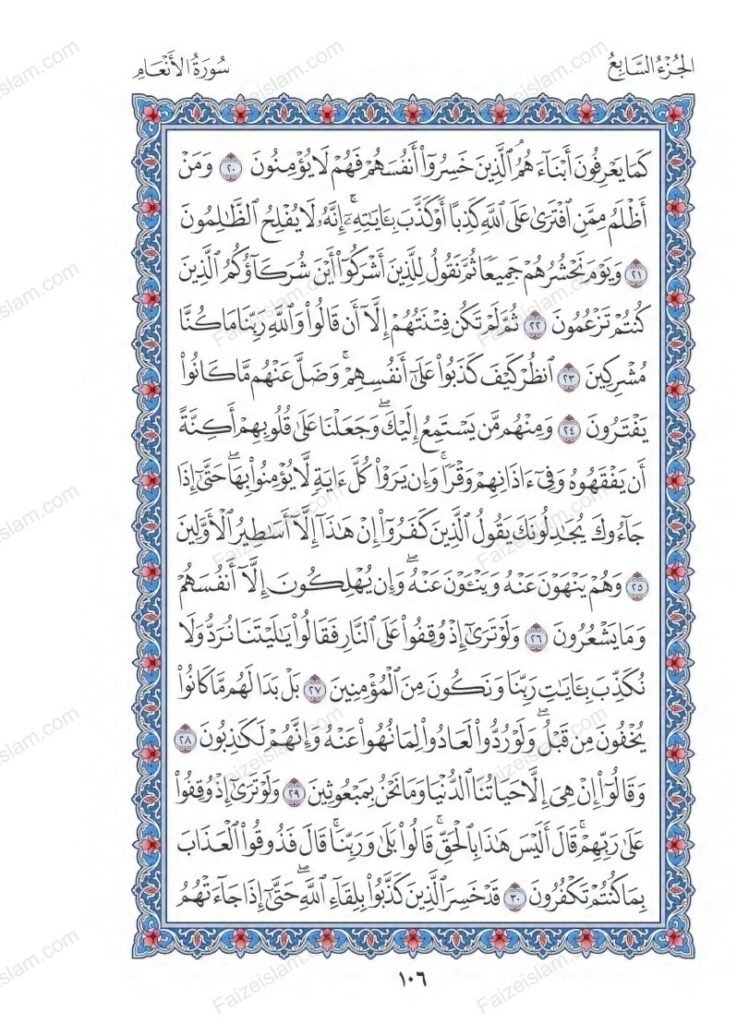 الجُزْءُ السَّابِعُ
سُورَةُ الأَنْعَامِ
كَمَا يَعْرِفُونَ أَبْنَاءَهُمُ ٱلَّذِينَ خَسِرُوٓا۟ أَنفُسَهُمْ فَهُمْ لَا يُؤْمِنُونَ ٢٠ وَمَنْ
أَظْلَمُ مِمَّنِ ٱفْتَرَىٰ عَلَى ٱللَّهِ كَذِبًا أَوْ كَذَّبَ بِـَٔايَـٰتِهِۦٓ ۗ إِنَّهُۥ لَا يُفْلِحُ ٱلظَّـٰلِمُونَ
٢١ وَيَوْمَ نَحْشُرُهُمْ جَمِيعًا ثُمَّ نَقُولُ لِلَّذِينَ أَشْرَكُوٓا۟ أَيْنَ شُرَكَآؤُكُمُ ٱلَّذِينَ
كُنتُمْ تَزْعُمُونَ ٢٢ ثُمَّ لَمْ تَكُن فِتْنَتُهُمْ إِلَّآ أَن قَالُوا۟ وَٱللَّهِ رَبِّنَا مَا كُنَّا
مُشْرِكِينَ ٢٣ ٱنظُرْ كَيْفَ كَذَبُوا۟ عَلَىٰٓ أَنفُسِهِمْ ۚ وَضَلَّ عَنْهُم مَّا كَانُوا۟
يَفْتَرُونَ ٢٤ وَمِنْهُم مَّن يَسْتَمِعُ إِلَيْكَ ۖ وَجَعَلْنَا عَلَىٰ قُلُوبِهِمْ أَكِنَّةً
أَن يَفْقَهُوهُ وَفِىٓ ءَاذَانِهِمْ وَقْرًا ۚ وَإِن يَرَوْا۟ كُلَّ ءَايَةٍ لَّا يُؤْمِنُوا۟ بِهَا ۖ حَتَّىٰٓ إِذَا
جَآءُوكَ يُجَـٰدِلُونَكَ يَقُولُ ٱلَّذِينَ كَفَرُوٓا۟ إِنْ هَـٰذَآ إِلَّآ أَسَـٰطِيرُ ٱلْأَوَّلِينَ
٢٥ وَهُمْ يَنْهَوْنَ عَنْهُ وَيَنْـَٔوْنَ عَنْهُ ۖ وَإِن يُهْلِكُونَ إِلَّآ أَنفُسَهُمْ
وَمَا يَشْعُرُونَ ٢٦ وَلَوْ تَرَىٰٓ إِذْ وُقِفُوا۟ عَلَى ٱلنَّارِ فَقَالُوا۟ يَـٰلَيْتَنَا نُرَدُّ وَلَا
نُكَذِّبَ بِـَٔايَـٰتِ رَبِّنَا وَنَكُونَ مِنَ ٱلْمُؤْمِنِينَ ٢٧ بَلْ بَدَا لَهُم مَّا كَانُوا۟
يُخْفُونَ مِن قَبْلُ ۖ وَلَوْ رُدُّوا۟ لَعَادُوا۟ لِمَا نُهُوا۟ عَنْهُ وَإِنَّهُمْ لَكَـٰذِبُونَ ٢٨
وَقَالُوٓا۟ إِنْ هِىَ إِلَّا حَيَاتُنَا ٱلدُّنْيَا وَمَا نَحْنُ بِمَبْعُوثِينَ ٢٩ وَلَوْ تَرَىٰٓ إِذْ وُقِفُوا۟
عَلَىٰ رَبِّهِمْ ۚ قَالَ أَلَيْسَ هَـٰذَا بِٱلْحَقِّ ۚ قَالُوا۟ بَلَىٰ وَرَبِّنَا ۚ قَالَ فَذُوقُوا۟ ٱلْعَذَابَ
بِمَا كُنتُمْ تَكْفُرُونَ ٣٠ قَدْ خَسِرَ ٱلَّذِينَ كَذَّبُوا۟ بِلِقَآءِ ٱللَّهِ ۖ حَتَّىٰٓ إِذَا جَآءَتْهُمُ
١٠٦
Faizeislam.com